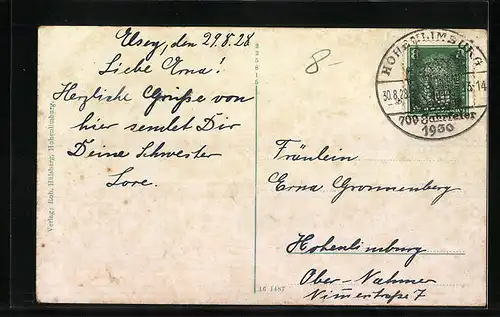 Elsey, den 29.8.28
Liebe Erna!
Herzliche Grüße von
hier sendet Dir
Deine Schwester
Lore.
8-
HOHENLIMBURG
30.8.28
13-14
700 Jahrfeier
1930
Fräulein
Erna Gronnenberg
Hohenlimburg
Ober-Nahmer
7
Verlag: Rob. Hülsberg, Hohenlimburg.
16 1487